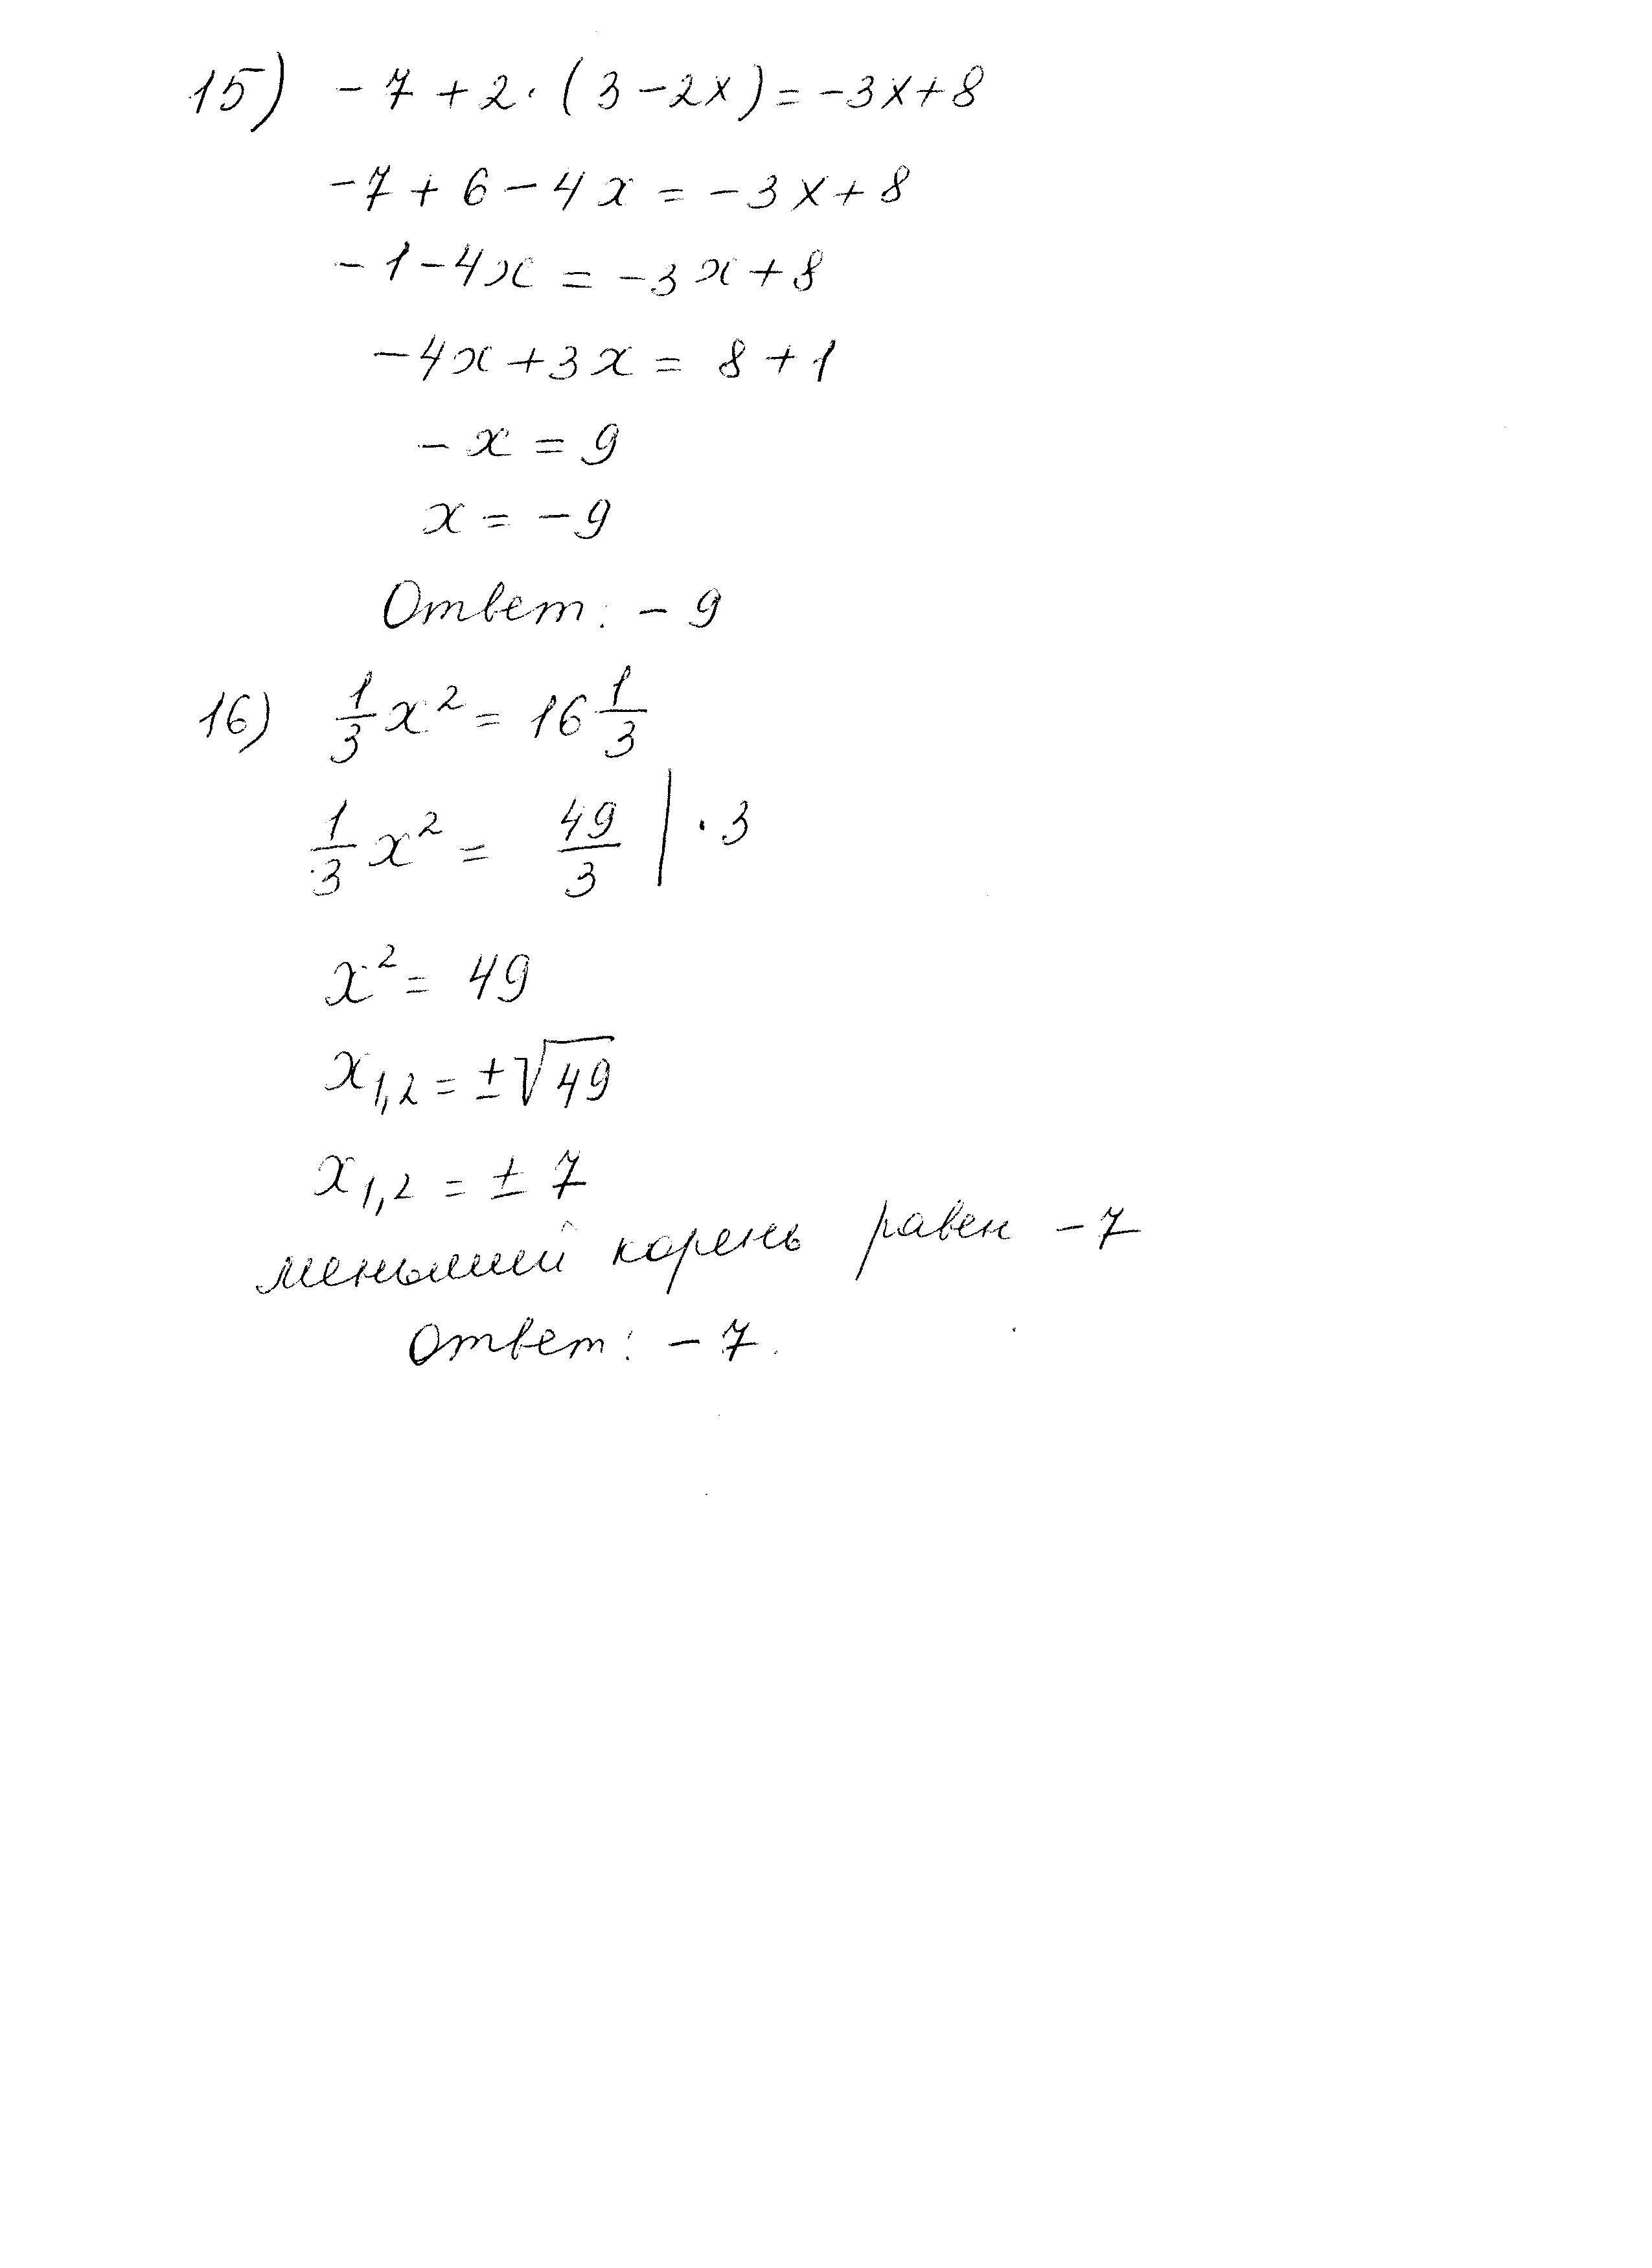 15) -7+2·(3-2x)=-3x+8
-7+6-4x=-3x+8
-1-4x=-3x+8
-4x+3x=8+1
-x=9
x=-9
Ответ: -9
16) 1/3 x²=16 1/3
1/3 x²= 49/3 | ·3
x²=49
x1,2=±√49
x1,2=±7
меньший корень равен -7
Ответ: -7.